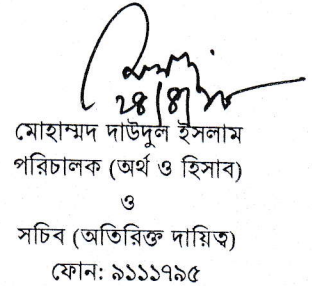 মোহাম্মদ দাউদুল ইসলাম
পরিচালক (অর্থ ও হিসাব)
ও
সচিব (অতিরিক্ত দায়িত্ব)
ফোন: ৯১১১৭৯৫